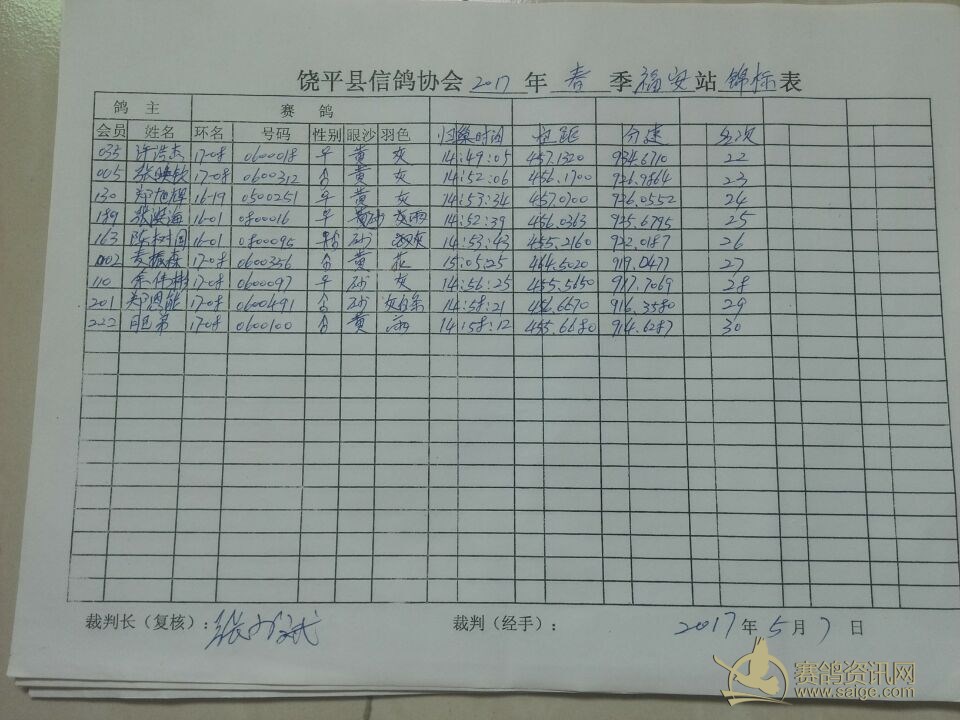 饶平县信鸽协会2017年春季福安站锦标表
鸽主 赛鸽
会员 姓名 环名 号码 性别 眼沙 羽色 归巢时间 空距 分速 名次
035 许浩杰 17-08 0600018 平 黄 灰 14:49:05 457.1320 934.6710 22
005 张映钦 17-08 0600312 黄 灰 14:52:06 456.1700 926.9864 23
130 郑旭辉 16-19 0500251 平 黄 灰 14:53:34 457.0700 926.0552 24
189 张洪海 16-01 0800016 平 14:52:39 456.0363 925.6795 25
163 陈树国 16-01 0800095 砂 14:53:43 455.2160 922.0187 26
002 17-08 0600356 黄 花 15:05:25 464.5020 919.0477 27
110 余伟彬 17-08 0600097 平 砂 灰 14:56:25 455.5650 917.7069 28
201 郑恩能 17-08 0600491 砂 14:58:21 456.6670 916.3580 29
222 17-08 0600100 黄 雨 14:58:12 455.6680 914.6287 30
裁判长（复核）： 裁判（经手）： 2017年5月7日
赛鸽资讯网
www.saigc.com